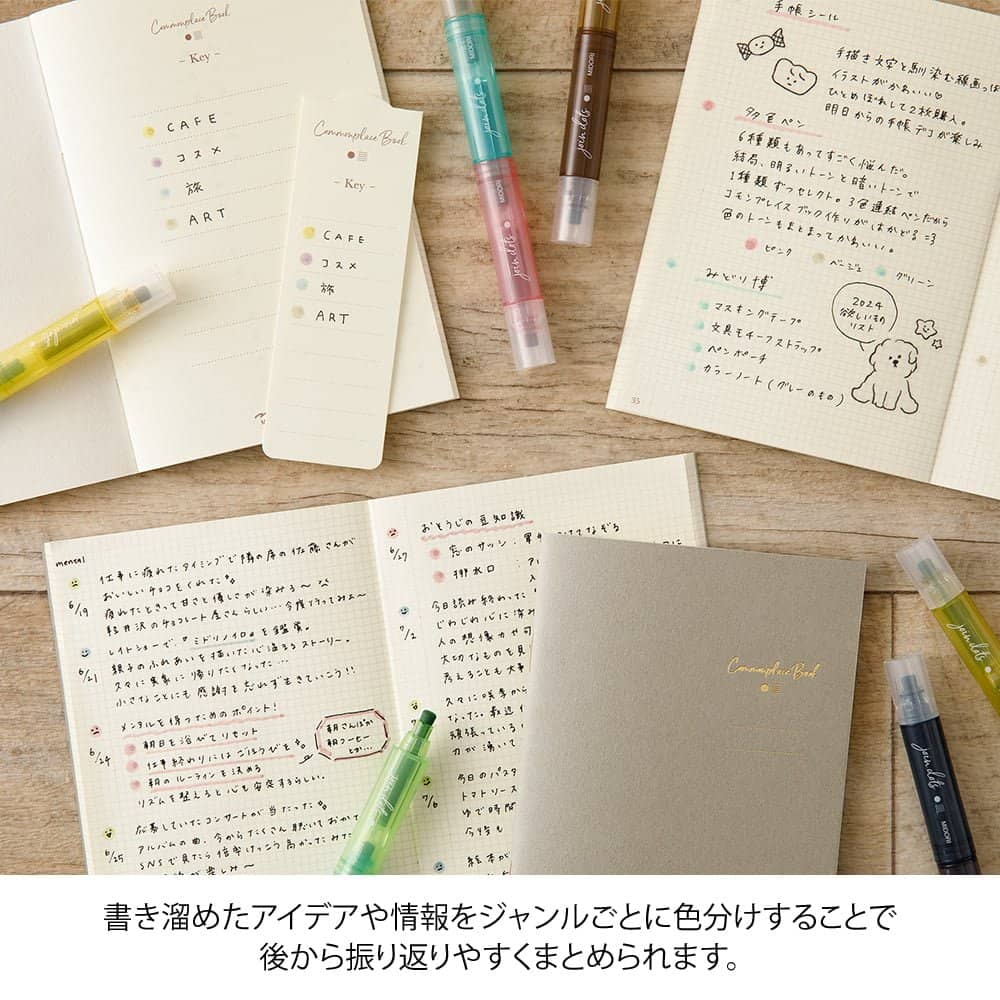 Commonplace Book
– Key –
CAFE
コスメ
旅
ART
Commonplace Book
– Key –
CAFE
コスメ
旅
ART
join dots
MIDORI
join dots
MIDORI
join dots
手帳シール
手描き文字と馴染む線画っぽ
イラストがかわいい♡
ひとめぼれして2枚購入。
明日からの手帳デコが楽しみ
多色ペン
6種類もあってすごく悩んだ。
結局、明るいトーンと暗いトーンで
1種類ずつセレクト。3色連結ペンだから
コモンプレイスブック作りがはかどる=3
色のトーンもまとまってかわいい。
ピンク
ベージュ
グリーン
みどり博
マスキングテープ
文具モチーフストラップ
ペンポーチ
カラーノート(グレーのもの)
2024
欲しいもの
リスト
35
mental
6/19
仕事に疲れたタイミングで隣の席の佐藤さんが
おいしいチョコをくれた
疲れたときって甘さと優しさが染みる〜
軽井沢のチョコレート屋さんらしい…今度行ってみよ〜
6/21
レイトショーで、『ミドリノイロ』を鑑賞。
親子のふれあいを描いた心温まるストーリー。
久々に実家に帰りたくなった…
小さなことにも感謝を忘れず生きていこう!!
6/24
メンタルを保つためのポイント!
朝日を浴びてリセット
仕事終わりにはごほうびを
朝のルーティンを決める
リズムを整えると心も安定するらしい。
朝さんぽか
朝コーヒー
とか…
6/25
応募していたコンサートが当たった
アルバムの曲、今からたくさん聴いておかて
SNSで見たら倍率けっこう高かったみた
が楽しみ〜
6/27
おとうじの豆知識
窓のサッシ:
排水口:
7/2
今日読み終わった
じわじわ心に染み
人の想像力や可
大切なものを見
考えることも大事
久々に咲季から
なった。最近
頑張っている
力が湧いて
7/6
今日のパスタ
トマトソース
ゆで時間
今時も
絵本が
Commonplace Book
join dots
join dots
MIDORI
書き溜めたアイデアや情報をジャンルごとに色分けすることで
後から振り返りやすくまとめられます。